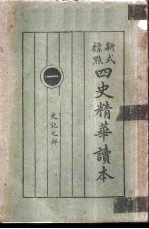 新式標點
四史精華讀本
一
史記之部